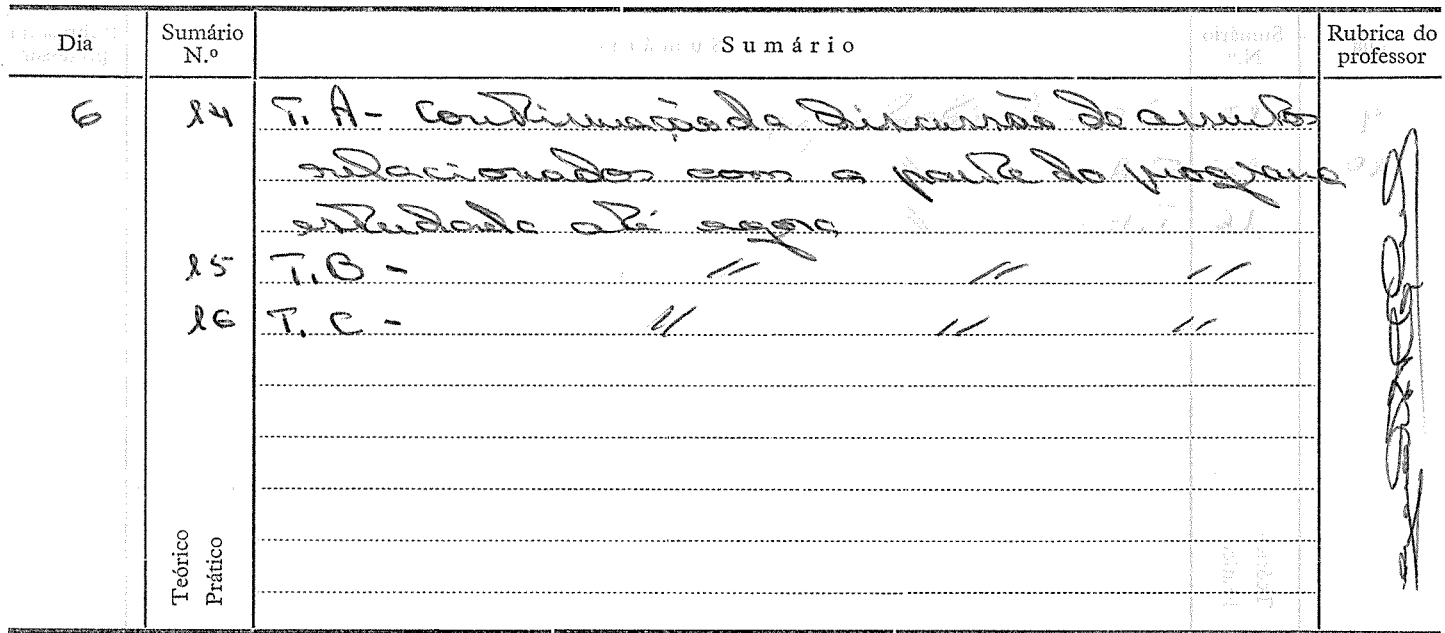 Dia Sumário N.º Sumário Rubrica do professor
6 14 T. A - Continuação da discussão de assuntos
relacionados com a parte do programa
estudada até agora
15 T. B - " " "
16 T. C - " " "
Teórico
Prático